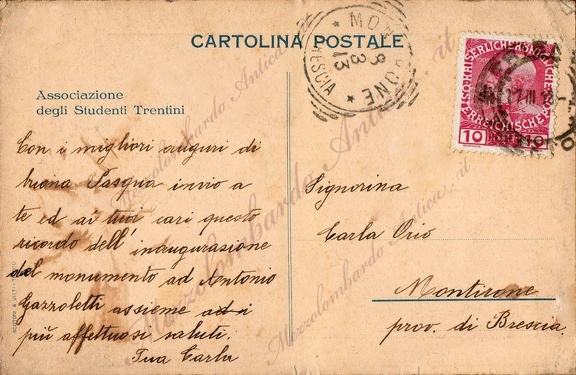 CARTOLINA POSTALE
Associazione
degli Studenti Trentini
Con i migliori auguri di
buona Pasqua invio a
te ed ai tuoi cari questo
ricordo dell' inaugurazione
del monumento ad Antonio
Gazzoletti assieme ad i
più affettuosi saluti.
Tua Carla
Signorina
Carla Orio
Montirone
prov. di Brescia.
10
MONTIRONE
BRESCIA
8 3 13
Mezzolombardo Antica.it
Mezzolombardo Antica.it